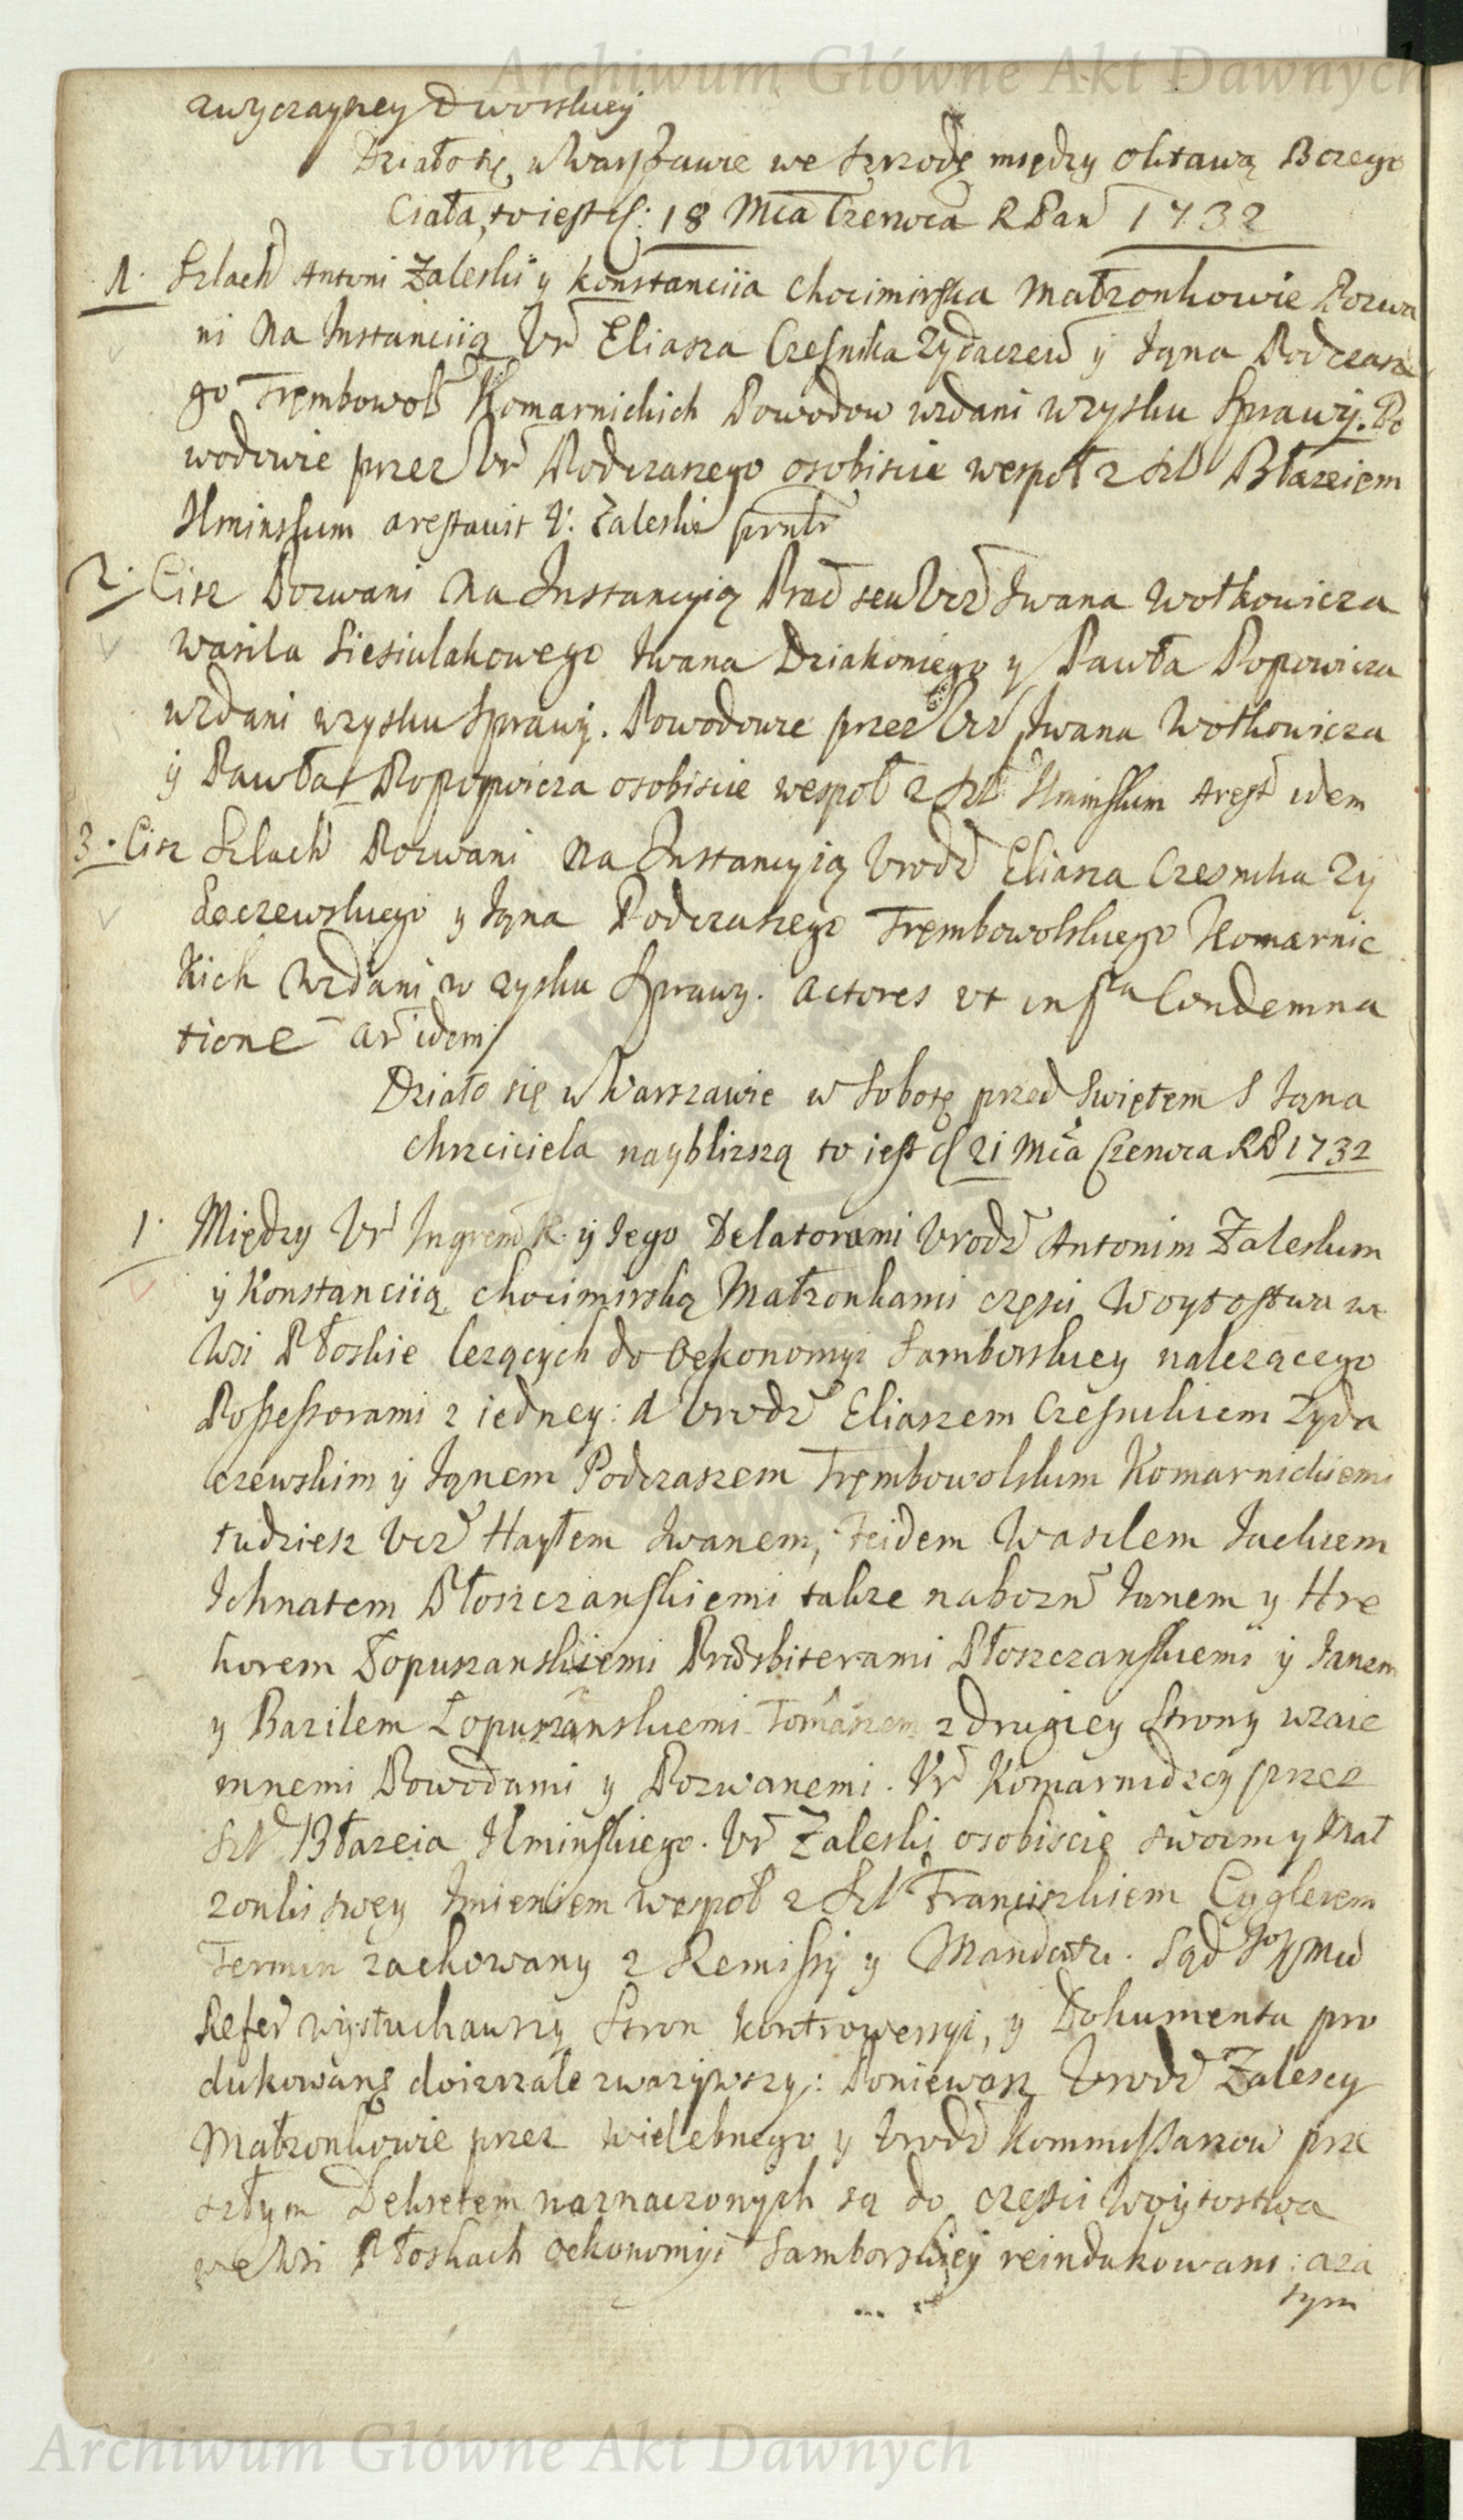 Archiwum Główne Akt Dawnych
zwyczayney Dworskiey
Działo się w Warszawie we Szrodę między Oktawą Bozego
Ciała, to iest d: 18 Mca Czerwca R Pań 1732
1. Szlach Antoni Zaleski y Konstanciia Chocimirska Małzonkowie Pozwa
ni Na Instanciią Ur Eliasza Czesnika Zydaczew y Jąna Podczasze
go Trembowol Komarnickich Powodow wzdani wzysku Sprawy. Po
wodowie przez Ur Podczaszego osobiscie wespoł z Szl Błazeiem
Ilminskim arestavit V: Zaleski
2. Cisz Pozwani Na Instancyią Prac seu Ucz Iwana Wołkowicza
Wasila Siesiulakowego Iwana Dziakoniego y Pawła Popowicza
wzdani wzysku Sprawy. Powodowie przez Ucz Iwana Wołkowicza
y Pawła Popowicza osobiscie wespoł z Szl Ilminskim Arest idem
3. Cisz Szlach Pozwani Na Instancyią Urodz Eliasza Czesnika Zy
daczewskiego y Jąna Podczaszego Trembowolskiego Komarnic
kich Wzdani w zysku Sprawy. Actores ut infra Condemna
tione ar idem
Działo się w Warszawie w Sobotę przed Swiętem S Jąna
Chrzciciela nayblizszą to iest d 21 Mca Czerwca RP 1732
1. Między Ur Ingrem R. y Jego Delatorami Urodz Antonim Zaleskim
y Konstanciią Chocimirską Małzonkami częsci Woytostwa we
Wsi Płoskie lezących do Oekonomyi Samborskiey nalezącego
Possessorami z iedney: A Urodz Eliaszem Czesnikiem Zyda
czewskim y Jąnem Podczaszem Trembowolskim Komarnickiemi
tudziesz Ucz Hayłem Iwanem, Feidem Wasilem Jackiem
Ichnatem Płoszczanskiemi takze nabozn Janem y Hre
horem Łopuszanskiemi Prezbiterami Płoszczanskiemi y Janem
y Bazilem Łopuszanskiemi Tomaszem z drugiey Strony wzaie
mnemi Powodami y Pozwanemi. Ur Komarniccy przez
Szl Błazeia Ilminskiego. Ur Zaleski osobiscie swoim y Mał
zonki swey Imieniem wespoł z Szl Franciszkiem Cyglerem
Termin zachowany z Remissy y Mandatu. Sąd
Refer wysłuchawszy Stron kontrowersyi, y Dokumenta pro
dukowane doizrzale zwazywszy: Poniewasz Urodz Zalescy
Małzonkowie przez Wielebnego y Urodz Kommissarzow prze
szłym Dekretem naznaczonych są do częsci Woytostwa
we Wsi Płoskach Oekonomyi Samborskiey reindukowani: aza
tym
Archiwum Główne Akt Dawnych